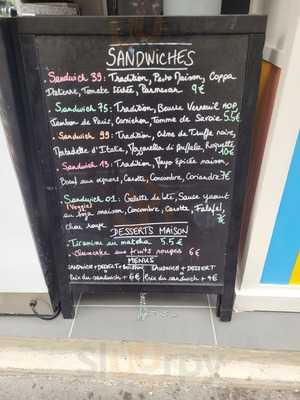 SANDWICHES
Sandwich 39: Tradition, Pesto Maison, Coppa
Italienne, Tomate Séchée, Parmesan 9€
Sandwich 75: Tradition, Beurre Verneuil AOP,
Jambon de Paris, Cornichon, Tomme de Savoie 5.5€
Sandwich 99: Tradition, Crème de Truffe noire,
Mortadelle d'Italie, Mozzarella di buffala, Roquette 10€
Sandwich 13: Tradition, Mayo Epicée maison,
Boeuf aux oignons, Carotte, Concombre, Coriandre 7€
Sandwich 01: Galette de blé, Sauce yaourt
(Veggie)
au soja maison, Concombre, Carotte, Falafel,
chou rouge 7€
DESSERTS MAISON
Tiramisu au matcha 5.5€
Cheesecake aux fruits rouges 6€
MENUS
SANDWICH + DESSERT + BOISSON
Prix du sandwich + 6€
SANDWICH + DESSERT
Prix du sandwich + 4€
sluurpy